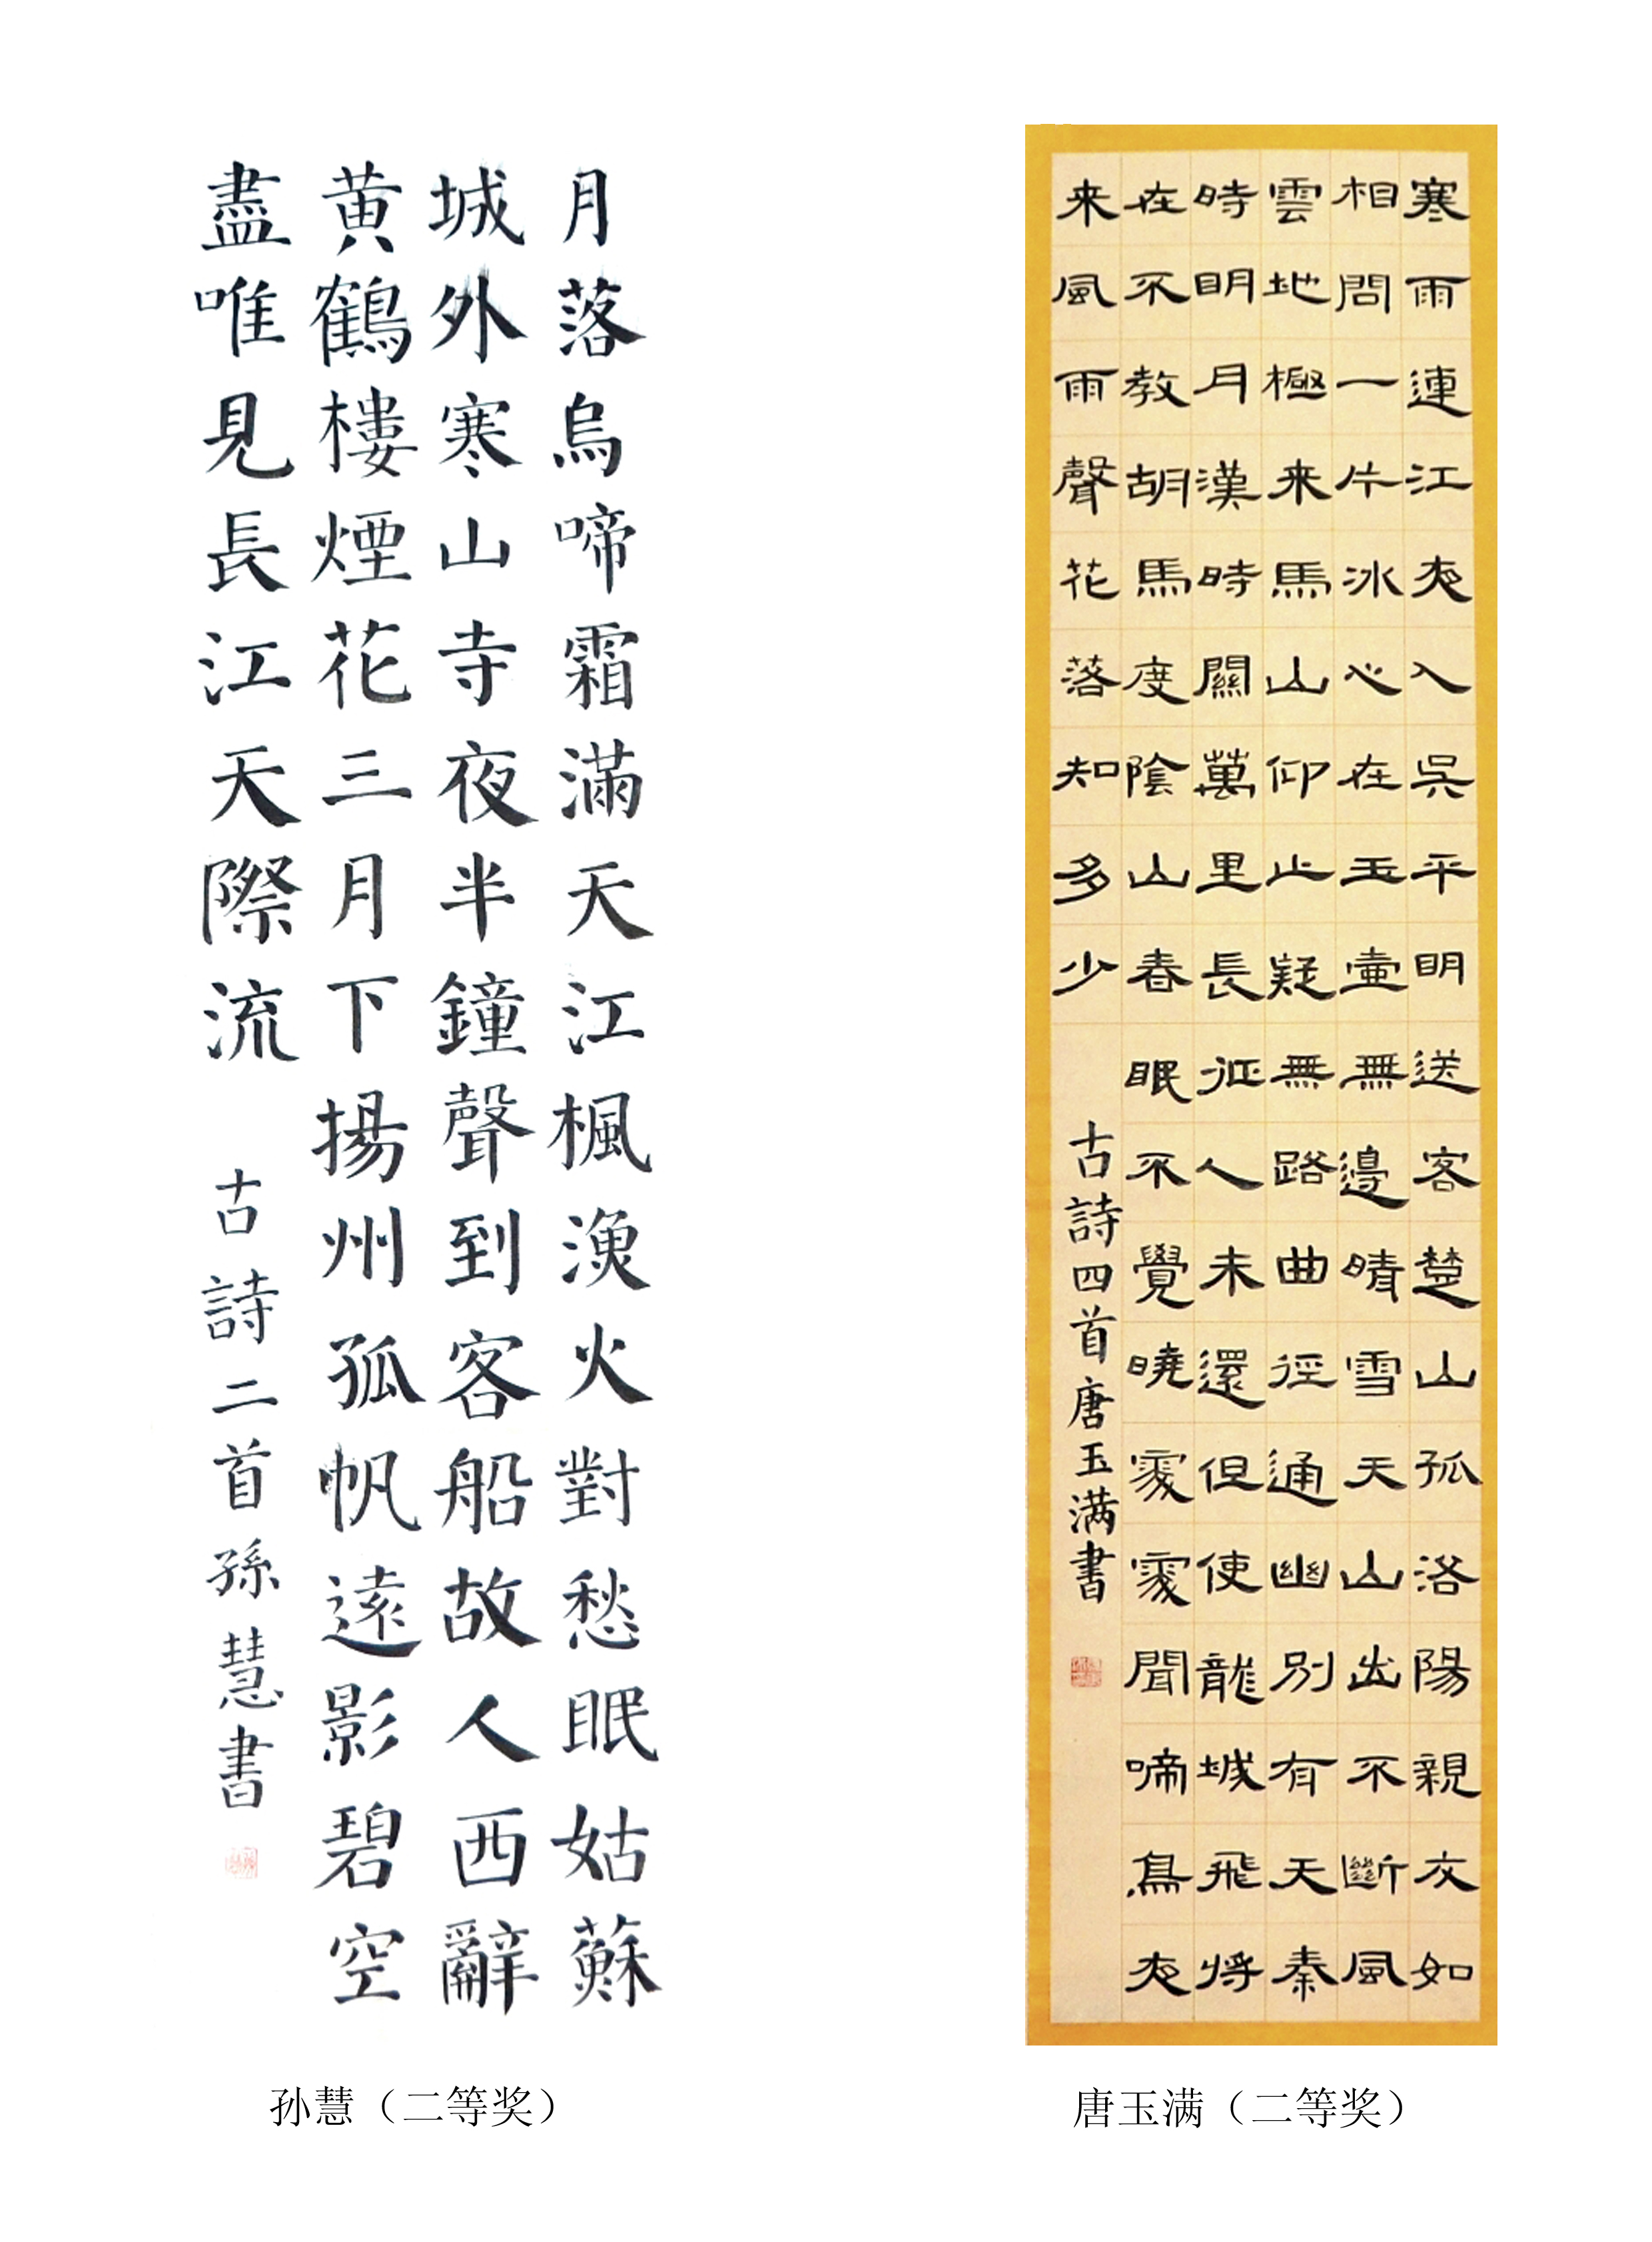 月落烏啼霜滿天江楓漁火對愁眠姑蘇
城外寒山寺夜半鐘聲到客船故人西辭
黄鶴樓煙花三月下揚州孤帆遠影碧空
盡唯見長江天際流 古詩二首孫慧書
孙慧（二等奖）
寒雨連江夜入吳平明送客楚山孤洛陽親友如
相問一片冰心在玉壺無邊晴雪天山出不斷風
雲地極来馬山仰止疑無路曲徑通幽別有天秦
時明月漢時關萬里長征人未還但使龍城飛將
在不教胡馬度陰山春眠不覺曉處處聞啼鳥夜
来風雨聲花落知多少 古詩四首唐玉满書
唐玉满（二等奖）